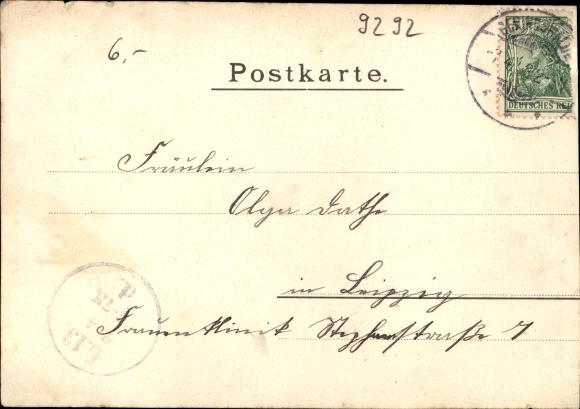 9292
6,-
Postkarte.
DEUTSCHES REI
Fräulein
Olga Dathe
in Leipzig
Frauenklinik Stephanstraße 7